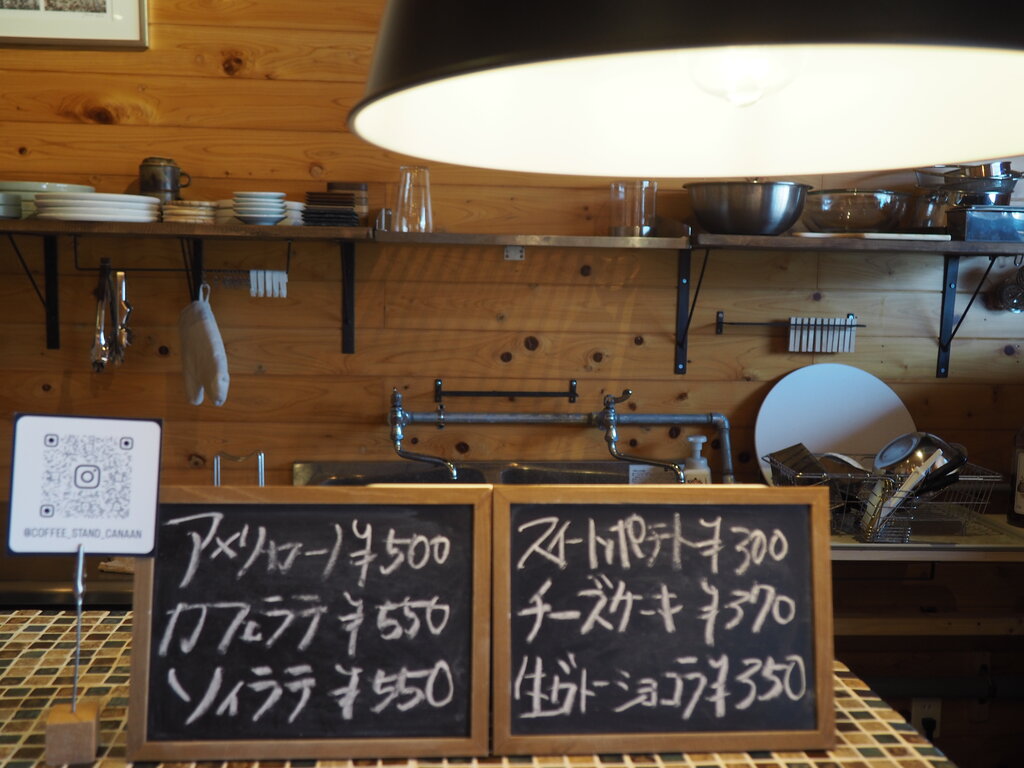 アメリカーノ ¥500
カフェラテ ¥550
ソイラテ ¥550
スイートポテト ¥300
チーズケーキ ¥370
生ガトーショコラ ¥350
@COFFEE_STAND_CANAAN